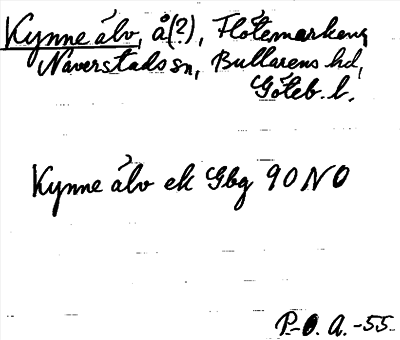 Kynne älv, å(?), Flötemarken,
Naverstads sn, Bullarens hd,
Göteb. l.
Kynne älv ek Gbg 90 NO
P.O.A. -55